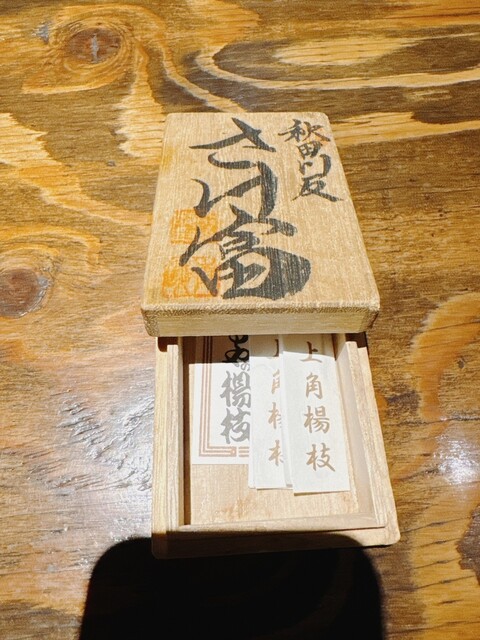 秋田川反
さけ富
上角楊枝
上角楊枝
の楊枝